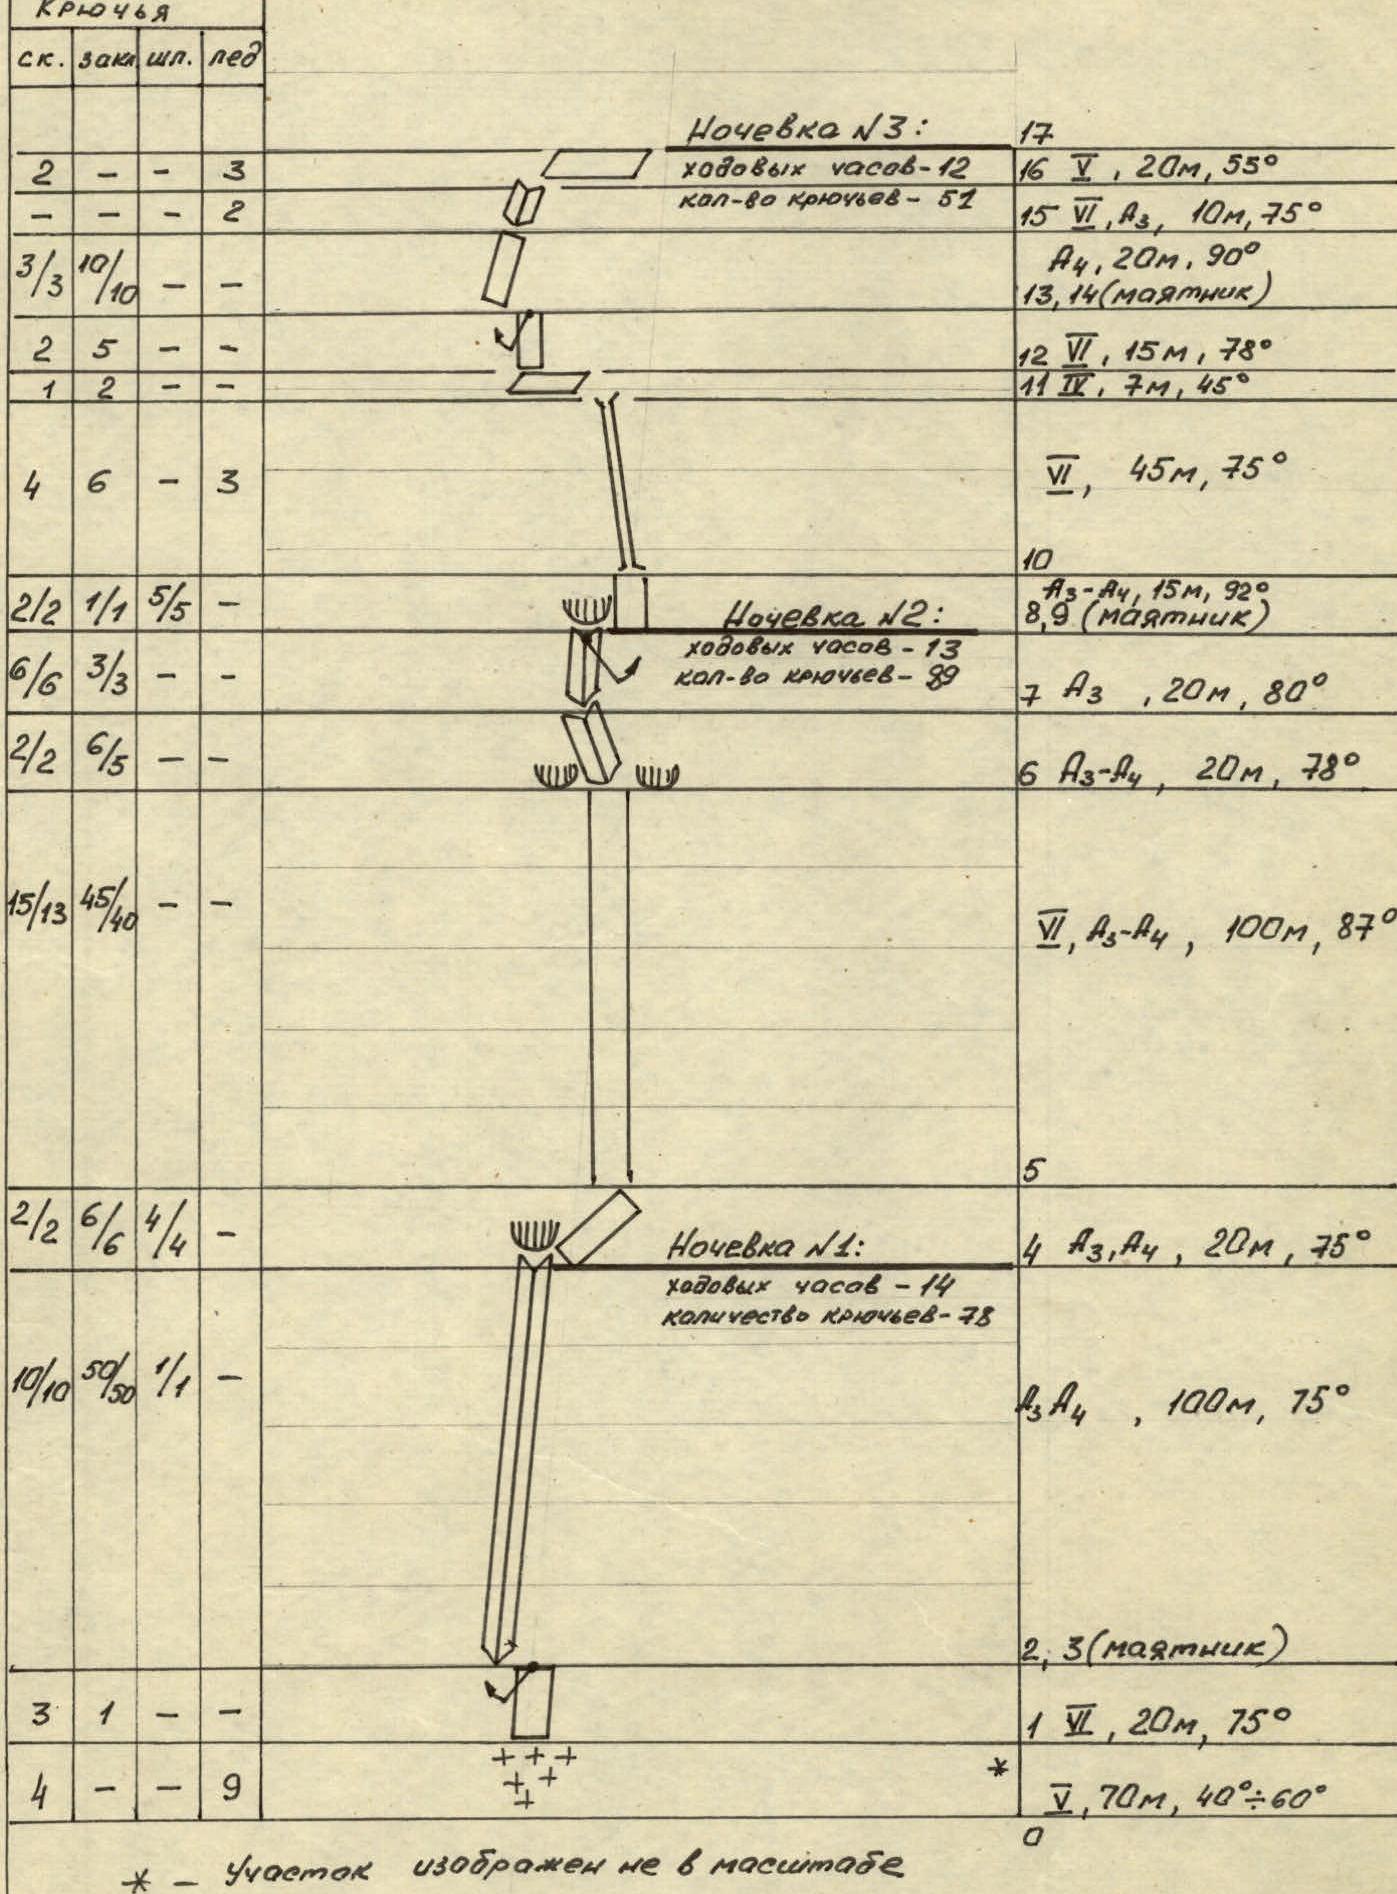 Крючья
ск. закл шл. лед
Ночевка N3: 17
2 – – 3 ходовых часов-12 16 V, 20м, 55°
– – – 2 кол-во крючьев - 51 15 VI, A3, 10м, 75°
3/3 10/10 – – A4, 20м, 90°
13, 14 (маятник)
2 5 – – 12 VI, 15м, 78°
1 2 – – 11 IV, 7м, 45°
4 6 – 3 VI, 45м, 75°
10
2/2 1/1 5/5 – A3-A4, 15м, 92°
Ночевка N2: 8,9 (маятник)
ходовых часов - 13
6/6 3/3 – – кол-во крючьев - 89 7 A3, 20м, 80°
2/2 6/5 – – 6 A3-A4, 20м, 78°
15/13 45/40 – – VI, A3-A4, 100м, 87°
5
2/2 6/6 4/4 – Ночевка N1: 4 A3, A4, 20м, 75°
ходовых часов - 14
количество крючьев- 78
10/10 50/50 1/1 – A3 A4, 100м, 75°
2, 3 (маятник)
3 1 – – 1 VI, 20м, 75°
*
4 – – 9 V, 70м, 40°÷60°
0
* – Участок изображен не в масштабе